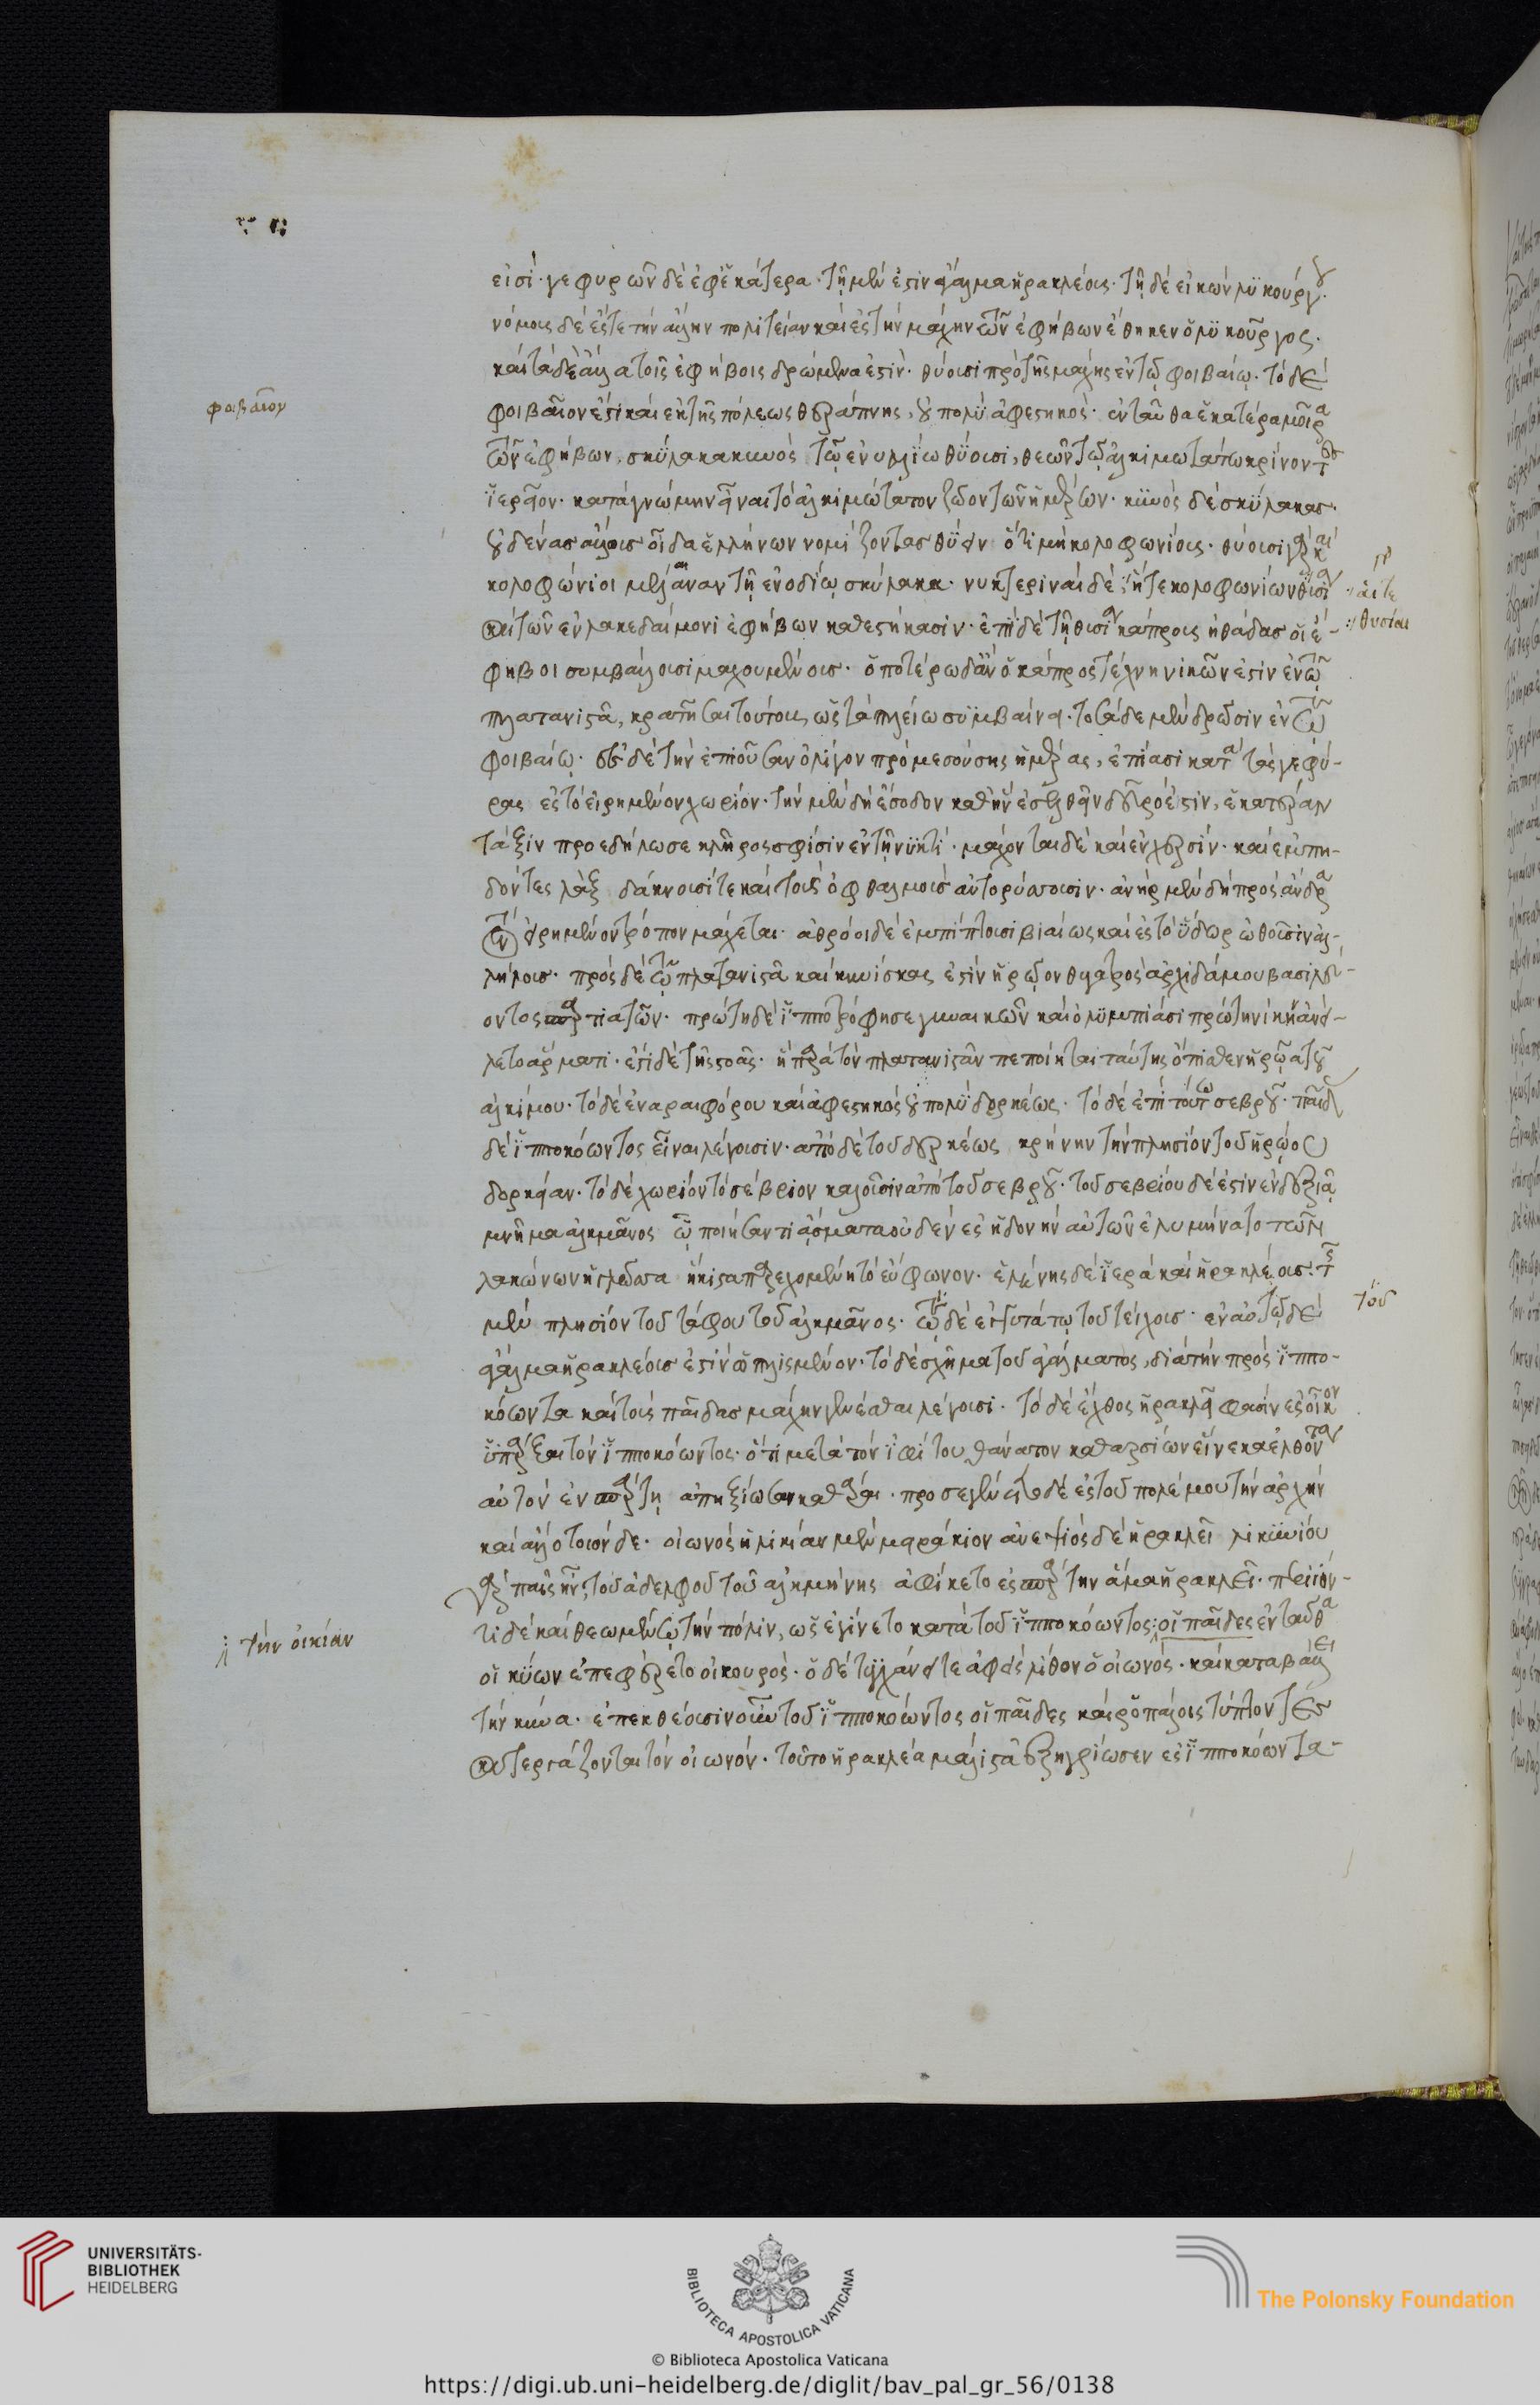 φοιβαῖον
εἰσί· γεφυρῶν δὲ ἐφ' ἑκάτερα· τῇ μέν ἐστιν ἄγαλμα ἡρακλέους· τῇ δὲ εἰκὼν λυκούργου·
νόμους δὲ ἔς τε τὴν ἄλλην πολιτείαν καὶ ἐς τὴν μάχην τῶν ἐφήβων ἔθηκεν ὁ λυκοῦργος.
καὶ τάδε ἄλλα τοῖς ἐφήβοις δρώμενα ἐστὶν· θύουσι πρὸ τῆς μάχης ἐν τῷ φοιβαίῳ· τὸ δὲ
φοιβαῖον ἐστὶ καὶ ἐκ τῆς πόλεως θεράπνης, οὐ πολὺ ἀφεστηκός· ἐνταῦθα ἑκατέρα μοῖρα
τῶν ἐφήβων, σκύλακα κυνὸς τῷ ἐνυαλίῳ θύουσι, θεῶν τῷ ἀλκιμωτάτῳ κρίνοντες
ἱερεῖον κατὰ γνώμην εἶναι τὸ ἀλκιμώτατον ζῷον τῶν ἡμέρων· κυνὸς δὲ σκύλακας
οὐδένας ἄλλους οἶδα ἑλλήνων νομίζοντας θύειν ὅτι μὴ κολοφωνίους· θύουσι γὰρ καὶ
κολοφώνιοι μέλαιναν τῇ ἐνοδίῳ σκύλακα· νυκτεριναὶ δὲ ἥ τε κολοφωνίων θυσίαν
αἵ τε
θυσίαι
καὶ τῶν ἐν λακεδαίμονι ἐφήβων καθεστήκασιν· ἐπὶ δὲ τῇ θυσίαν κάπρους ἠθάδας οἱ ἔ-
φηβοι συμβάλλουσι μαχουμένους· ὁποτέρῳ δ' ἂν ὁ κάπρος τύχῃ νικῶν ἐστὶν ἐν τῷ
πλατανιστᾷ, κρατῆσαι τούτους ὡς τὰ πλείω συμβαίνει· τοσάδε μὲν δρῶσιν ἐν τῷ
φοιβαίῳ· ἐς δὲ τὴν ἐπιοῦσαν ὀλίγον πρὸ μεσούσης ἡμέρας, ἐπίασι κατὰ τὰς γεφύ-
ρας ἐς τὸ εἰρημένον χωρίον· τὴν μὲν δὴ ἔσοδον καθ' ἣν ἐσελθεῖν δεῖ πρό ἐστιν, ἑκατέραν
τάξιν προεδήλωσε κλῆρος σφίσιν ἐν τῇ νυκτί· μάχονται δὲ καὶ ἐν χερσίν· καὶ ἐμπη-
δόντες λάξ δάκνουσί τε καὶ τοὺς ὀφθαλμοὺς ἀντορύσσουσιν· ἀνὴρ μὲν δὴ πρὸς ἄνδρα
τὸν εἰρημένον τρόπον μάχεται· ἀθρόοι δὲ ἐμπίπτουσι βιαίως καὶ ἐς τὸ ὕδωρ ὠθοῦσιν ἀλ-
λήλους· πρὸς δὲ τῷ πλατανιστᾷ καὶ κυνίσκας ἐστὶν ἡρῷον θυγατρὸς ἀρχιδάμου βασιλεύ-
οντος σπαρτιατῶν· πρώτη δὲ ἱπποτρόφησε γυναικῶν καὶ ὀλυμπιάσι πρώτη νίκην ἀνεί-
λετο ἅρματι· ἔστι δὲ τῆς στοᾶς· ἣ παρὰ τὸν πλατανιστᾶν πεποίηται ταύτης ὄπισθεν ἡρῷα τοῦ
ἀλκίμου· τὸ δὲ ἐναραιφόρου καὶ ἀφεστηκὸς οὐ πολὺ δορκέως· τὸ δὲ ἐπὶ τούτῳ σεβροῦ· παῖδας
δὲ ἱπποκόωντος εἶναι λέγουσιν· ἀπὸ δὲ τοῦ δορκέως κρήνην τὴν πλησίον τοῦ ἡρῴου
δορκείαν· τὸ δὲ χωρίον τὸ σέβριον καλοῦσιν ἀπὸ τοῦ σεβροῦ· τοῦ σεβρίου δέ ἐστιν ἐν δεξιᾷ
μνῆμα ἀλκμᾶνος ᾧ ποιήσαντι ᾄσματα οὐδὲν ἐς ἡδονὴν αὐτῶν ἐλυμήνατο τῶν
λακώνων ἡ γλῶσσα ἥκιστα παρεχομένη τὸ εὔφωνον· ἑλένης δὲ ἱερὰ καὶ ἡρακλέους· τῆς
μὲν πλησίον τοῦ τάφου τοῦ ἀλκμᾶνος· τῷ δὲ ἐγγυτάτω τοῦ τείχους· ἐν αὐτῷ δὲ
τοῦ
ἄγαλμα ἡρακλέους ἐστὶν ὡπλισμένον· τὸ δὲ σχῆμα τοῦ ἀγάλματος, διὰ τὴν πρὸς ἱππο-
κόωντα καὶ τοὺς παῖδας μάχην γενέσθαι λέγουσι· τὸ δὲ ἔχθος ἡρακλεῖ φασὶν ἐς οἶκον
ὑπάρξαι τὸν ἱπποκόωντος· ὅτι μετὰ τὸν ἰφίτου θάνατον καθαρσίων εἵνεκα ἐλθόνταν
αὐτὸν ἐν σπάρτῃ ἀπηξίωσαν καθᾶραι· προσεγένετο δὲ ἐς τοῦ πολέμου τὴν ἀρχὴν
καὶ ἄλλο τοιόνδε· οἰωνὸς ἡλικίαν μὲν μειράκιον ἀνεψιὸς δὲ ἡρακλεῖ λικυνίου
γὰρ παῖς ἦν τοῦ ἀδελφοῦ τοῦ ἀλκμήνης ἀφίκετο ἐς σπάρτην ἅμα ἡρακλεῖ· περιιόν-
τι δὲ καὶ θεωμένῳ τὴν πόλιν, ὡς ἐγίνετο κατὰ τοῦ ἱπποκόωντος· οἱ παῖδες ἐνταῦθα
τὴν οἰκίαν
οἱ κύων ἐπεφέρετο οἰκουρός· ὁ δὲ τυγχάνει τε ἀφεὶς λίθον ὁ οἰωνός· καὶ καταβάλλει
τὴν κύνα· ἐπεκθέουσιν οὖν τοῦ ἱπποκόωντος οἱ παῖδες καὶ ῥοπάλοις τύπτοντες
κατεργάζονται τὸν οἰωνόν· τοῦτο ἡρακλέα μάλιστα ἐξηγρίωσεν ἐς ἱπποκόωντα
UNIVERSITÄTS-
BIBLIOTHEK
HEIDELBERG
BIBLIOTECA APOSTOLICA VATICANA
The Polonsky Foundation
© Biblioteca Apostolica Vaticana
https://digi.ub.uni-heidelberg.de/diglit/bav_pal_gr_56/0138